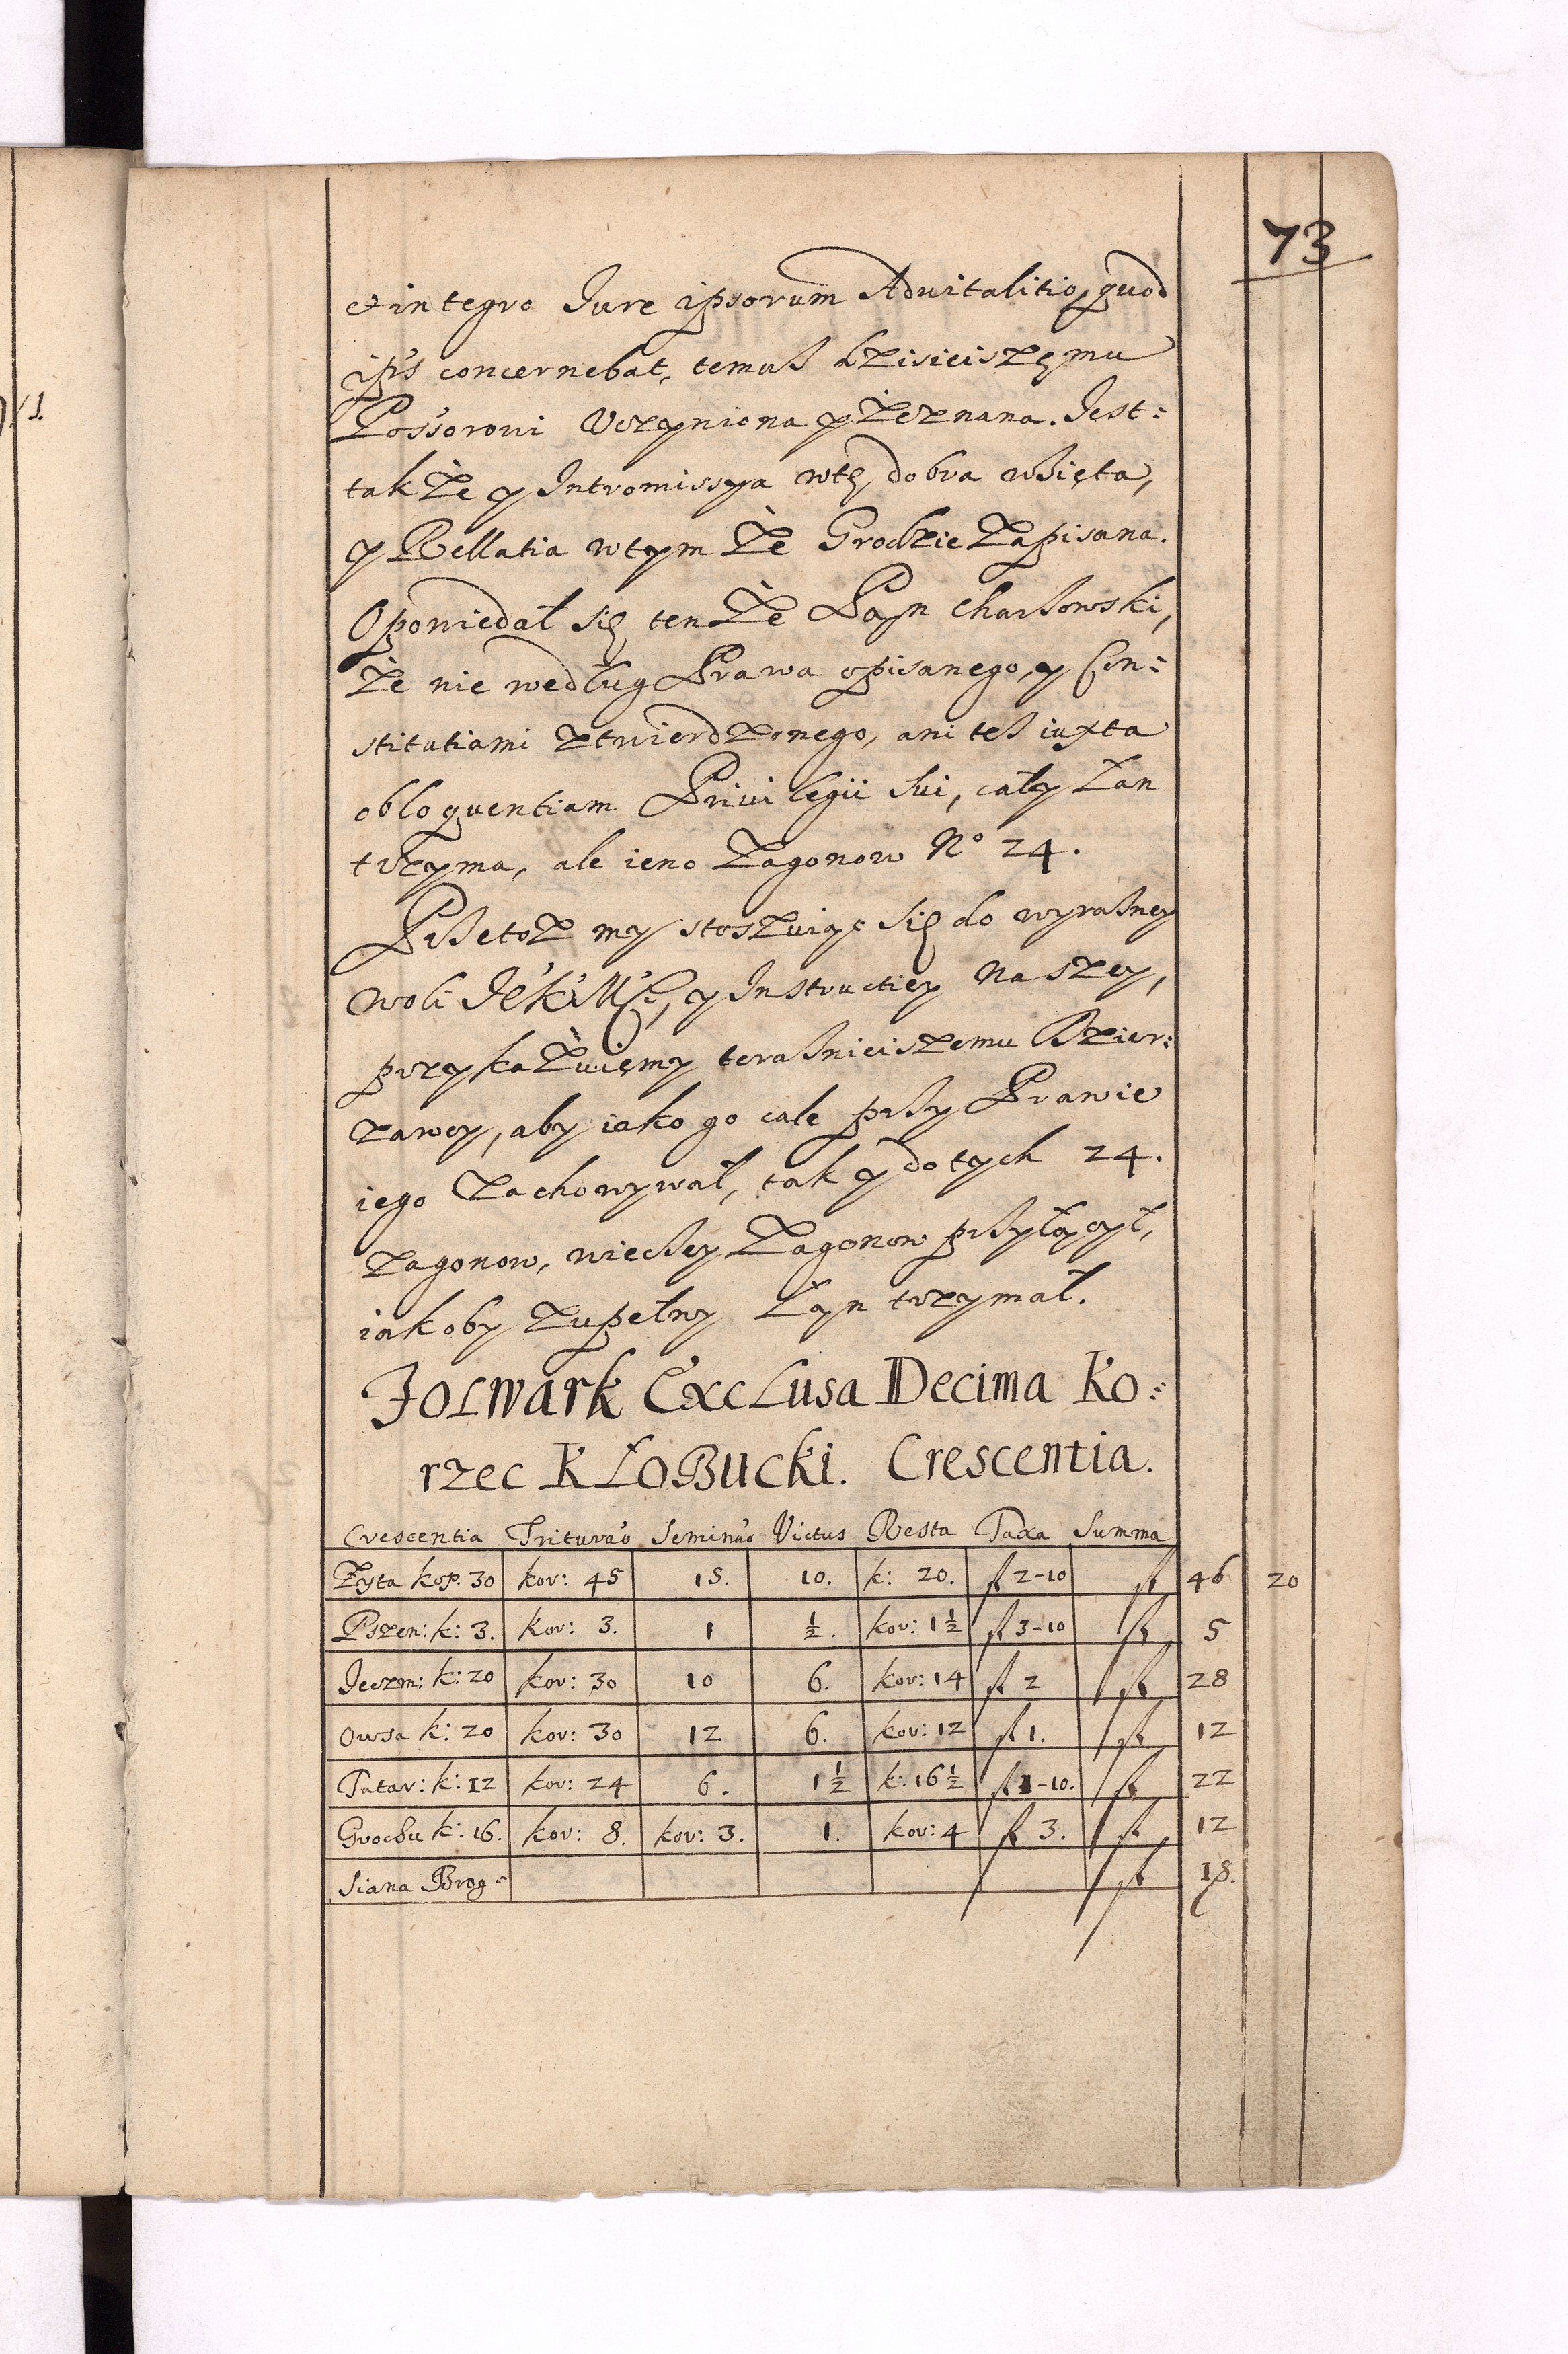 73
et integro Jure ipsorum Advitalitio, quod
ips concernebat, temuß dzisieiszęmu
Possorowi Uczyniona y Zeznana. Jest:
także y Intromissya wtę dobra wßięta,
y Rellatia wtym że Grodzie Zapisana.
Opowiedał się tenże Pan Charßowski,
że nie według Prawa opisanego, y Con:
stitutiami ztwierdzonego, ani teß iuxta
obloquentiam Privilegii sui, cały Łan
trzyma, ale ieno Zagonow No 24.
Pßetoż my stoszuiąc się do wyraßney
woli JeKMści, y Instructiey Naszey,
przykazuięmy teraßnieiszemu Dzier:
zawcy, aby iako go cale pßy Prawie
iego Zachowywał, tak y do tych 24.
Zagonow, wiecßey Zagonow pßyłączył,
iakoby Zupełny Łan trzymał.
Folwark Exclusa Decima Ko:
rzec Kłobucki. Crescentia.
Crescentia Triturao Seminao Victus Resta Taxa Summa
Zyta kop. 30 kor: 45 15. 10. k: 20. fl 2-10 fl 46 20
Pszen: k: 3. kor: 3. 1 ½. kor: 1½ fl 3-10 fl 5
Jeczm: k: 20 kor: 30 10 6. kor: 14 fl 2 fl 28
Owsa k: 20 kor: 30 12 6. kor: 12 fl 1. fl 12
Tatar: k: 12 kor: 24 6. 1½ k: 16½ fl 1-10. fl 22
Grochu k: 16. kor: 8. kor: 3. 1. kor: 4 fl 3. fl 12
Siana Brog: fl 18.